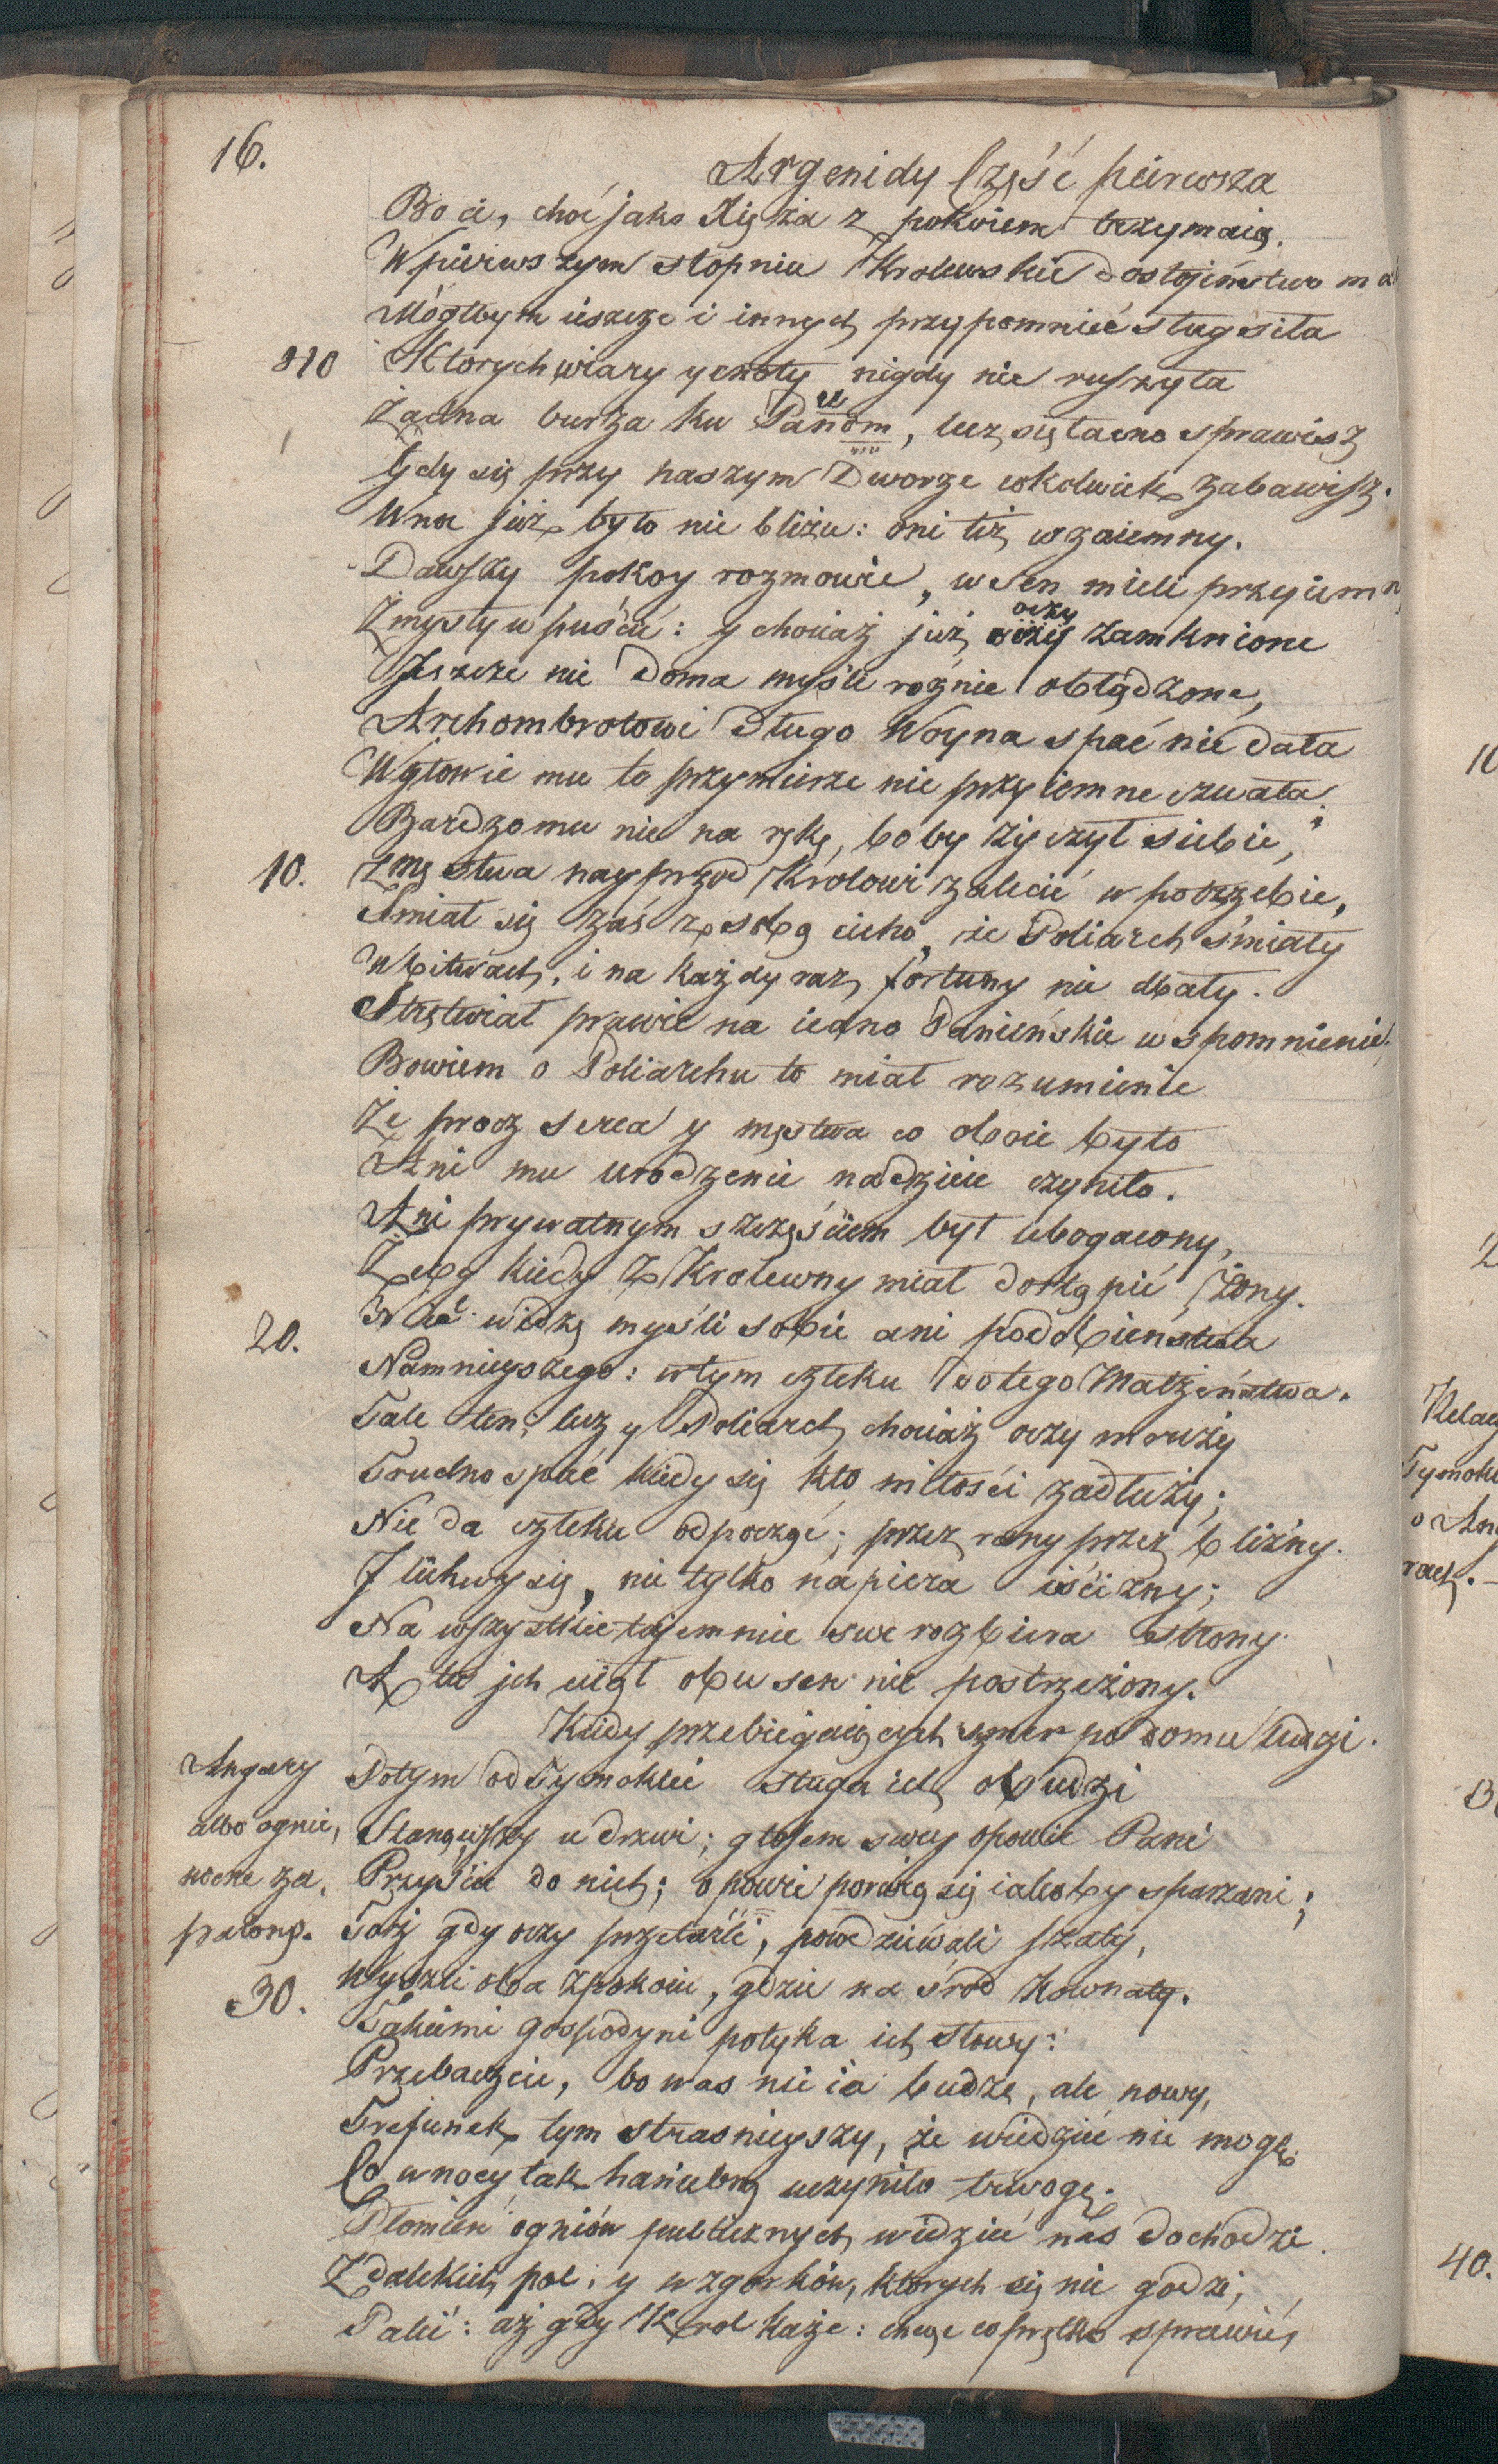 16.
Argenidy Część pierwsza
Bo ci, choć jako Xięża z pokoiem trzymaią.
W pierwszym stopniu Krolewskie dostojeństwo ma
Mógłbym ieszcze i innych przypomnieć sług siła
810 Ktorych wiary y cnoty nigdy nie ruszyła
Żadna burza ku Panom, lecz się łacno sprawisz
Gdy się przy naszym Dworze cokolwiek zabawisz.
W noc już było nie bliżu: oni też wzaiemny.
Dawszy pokoy rozmowie, w sen mieli przyiemn
Zmysły upuścić: y chociaż już oczy zamknione
Jeszcze nie doma myśli rożnie obłądzone,
Archombrotowi długo Woyna spać nie dała
W głowie mu to przymierze nie przyiemne czuała:
Bardzo mu nie na rękę, bo by życzył siebie,
10. Z męstwa nayprzod Krolowi zalecić w potrzebie,
Śmiał się zaś z sobą cicho, że Poliarch śmiały
W bitwach, i na każdy raz fortuny nie dbały.
Strętwiał prawie na iedno Panieńskie wspomnienie.
Bowiem o Poliarchu to miał rozumienie
Że procz serca y męstwa co oboie było
Ani mu urodzenie nadzieie czyniło.
Ani prywatnym szczęściem był ubogacony,
Żeby kiedy z Krolewny miał dostąpić żony.
20. Nie widzę myśli sobie ani podobieństwa
Namnieyszego: w tym człeku do tego Małżeństwa.
Tale ten; lecz y Poliarch chociaż oczy mruży
Trudno spać kiedy się kto miłości zadłuży;
Nie da człeku odpocząć; przez rany przez blizny.
I lichwy się, nie tylko napiera iścizny;
Na wszystkie tajemnie swe rozbiera strony.
A tu jch ciął obu sen nie postrzeżony.
Kiedy przebiegaiących szmer po domu ludzi.
Angary albo ognie, nocne za palono.
Potym od Tymoklei sługa ich obudzi
Stanąwszy u drzwi; głosem swey opowie Pani
Przyście do nich; opowie porwią się iakoby sparzani;
Toż gdy oczy przetarli, powdziewali szaty,
30. Wyszli oba z pokoiu, gdzie na środ kownaty.
Takiemi gospodyni potyka ich słowy:
Przebaczcie, bo was nie ia budzę, ale nowy,
Trefunek tym strasnieyszy, że wiedzieć nie mogę.
Co w nocy tak haniebną uczyniło trwogę.
Płomień ogniów publicznych widzieć nas dochodzi.
Z dalekich pol. y wzgorków, ktorych się nie godzi,
Palić: aż gdy Krol każe: chcąc co prętko sprawić,